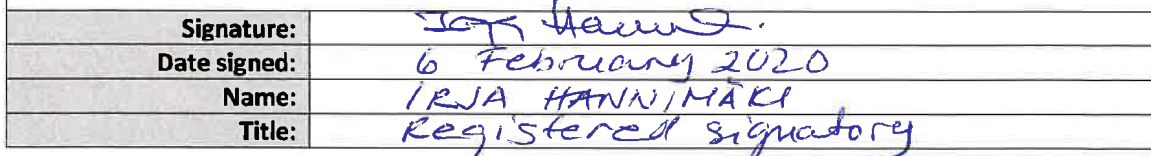 Signature:
Date signed: 6 February 2020
Name: IRJA HANNIMÄKI
Title: Registered signatory